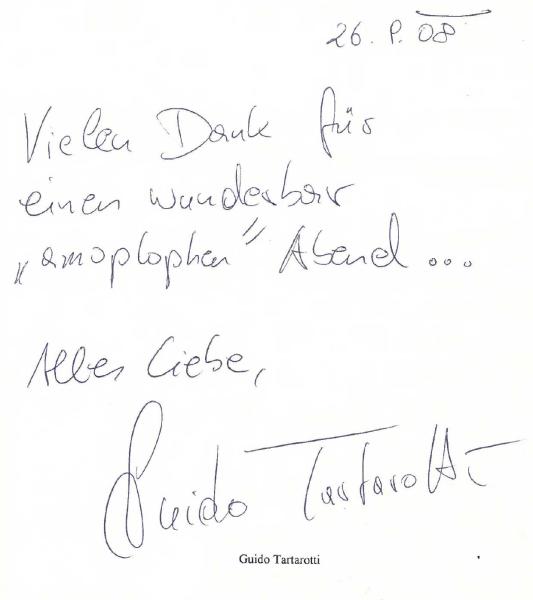 26. P. 08
Vielen Dank für
einen wunderbar
„amoplophen" Abend ...
Alles Liebe,
Guido Tartarotti
Guido Tartarotti